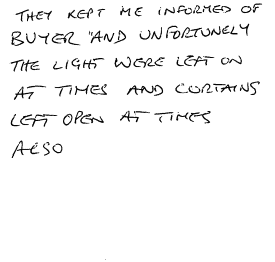 THEY KEPT ME INFORMED OF
BUYER "AND UNFORTUNELY
THE LIGHT WERE LEFT ON
AT TIMES AND CORTAINS
LEFT OPEN AT TIMES
ALSO